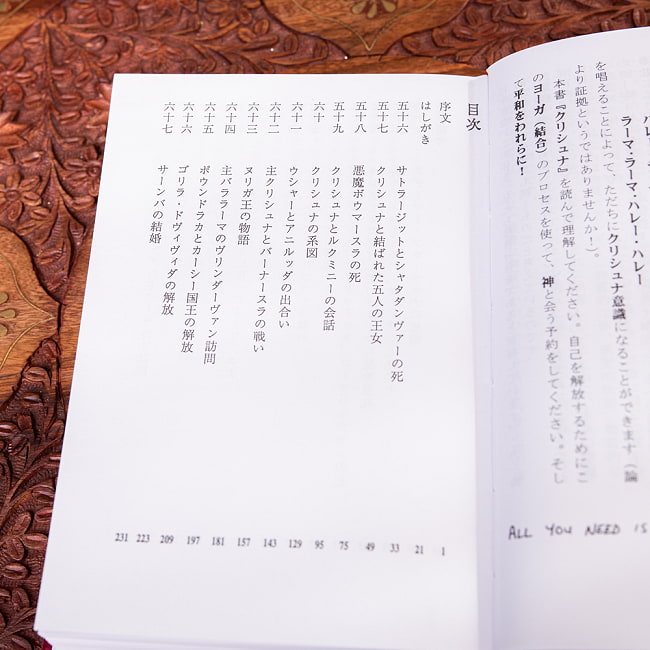 ラーマ・ラーマ・ハレー・ハレー
を唱えることによって、ただちにクリシュナ意識になることができます（論
より証拠というではありませんか！）。
本書『クリシュナ』を読んで理解してください。自己を解放するためにこ
のヨーガ（結合）のプロセスを使って、神と会う予約をしてください。そし
て平和をわれらに！
ALL YOU NEED IS
目次
序文 1
はしがき 21
五十六 サトラージットとシャタダンヴァーの死 33
五十七 クリシュナと結ばれた五人の王女 49
五十八 悪魔ボウマースラの死 75
五十九 クリシュナとルクミニーの会話 95
六十 クリシュナの系図 129
六十一 ウシャーとアニルッダの出合い 143
六十二 主クリシュナとバーナースラの戦い 157
六十三 ヌリガ王の物語 181
六十四 主バララーマのヴリンダーヴァン訪問 197
六十五 ポウンドラカとカーシー国王の解放 209
六十六 ゴリラ・ドヴィヴィダの解放 223
六十七 サーンバの結婚 231